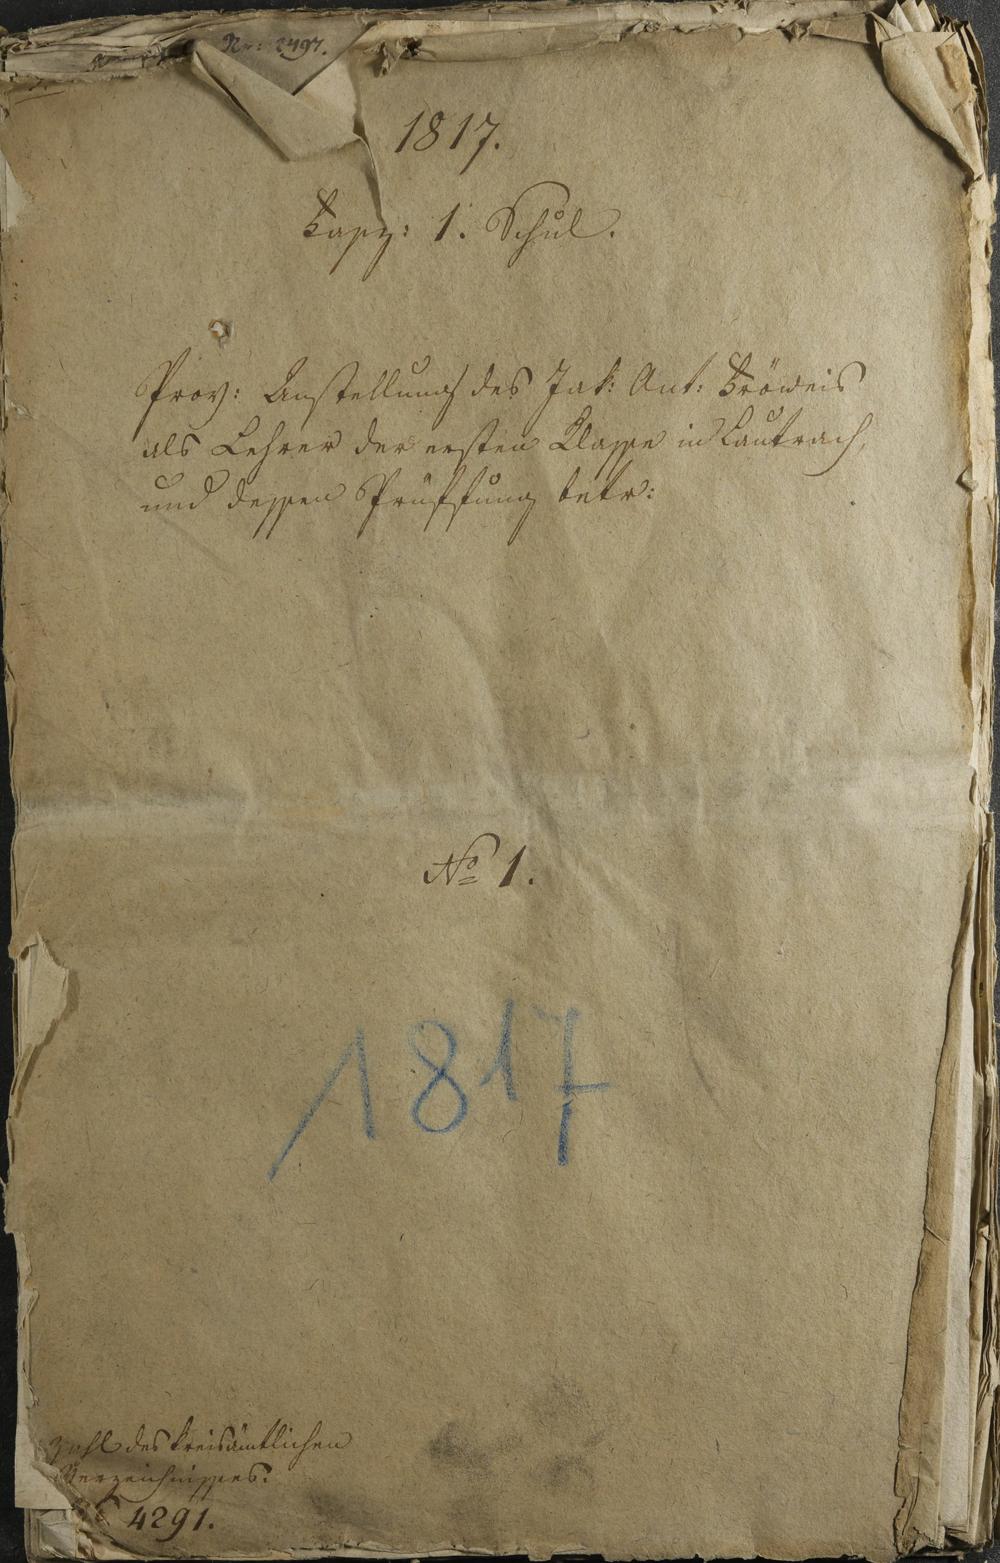 Nr: 2497.
1817.
Fasz: 1. Schul.
Prov: Anstellung des Jak: Ant: Fröweis
als Lehrer der ersten Klasse in Lautrach,
und dessen Prüffung betr:
No 1.
1817
Zahl des kreisämtlichen
Verzeichnisses:
4291.